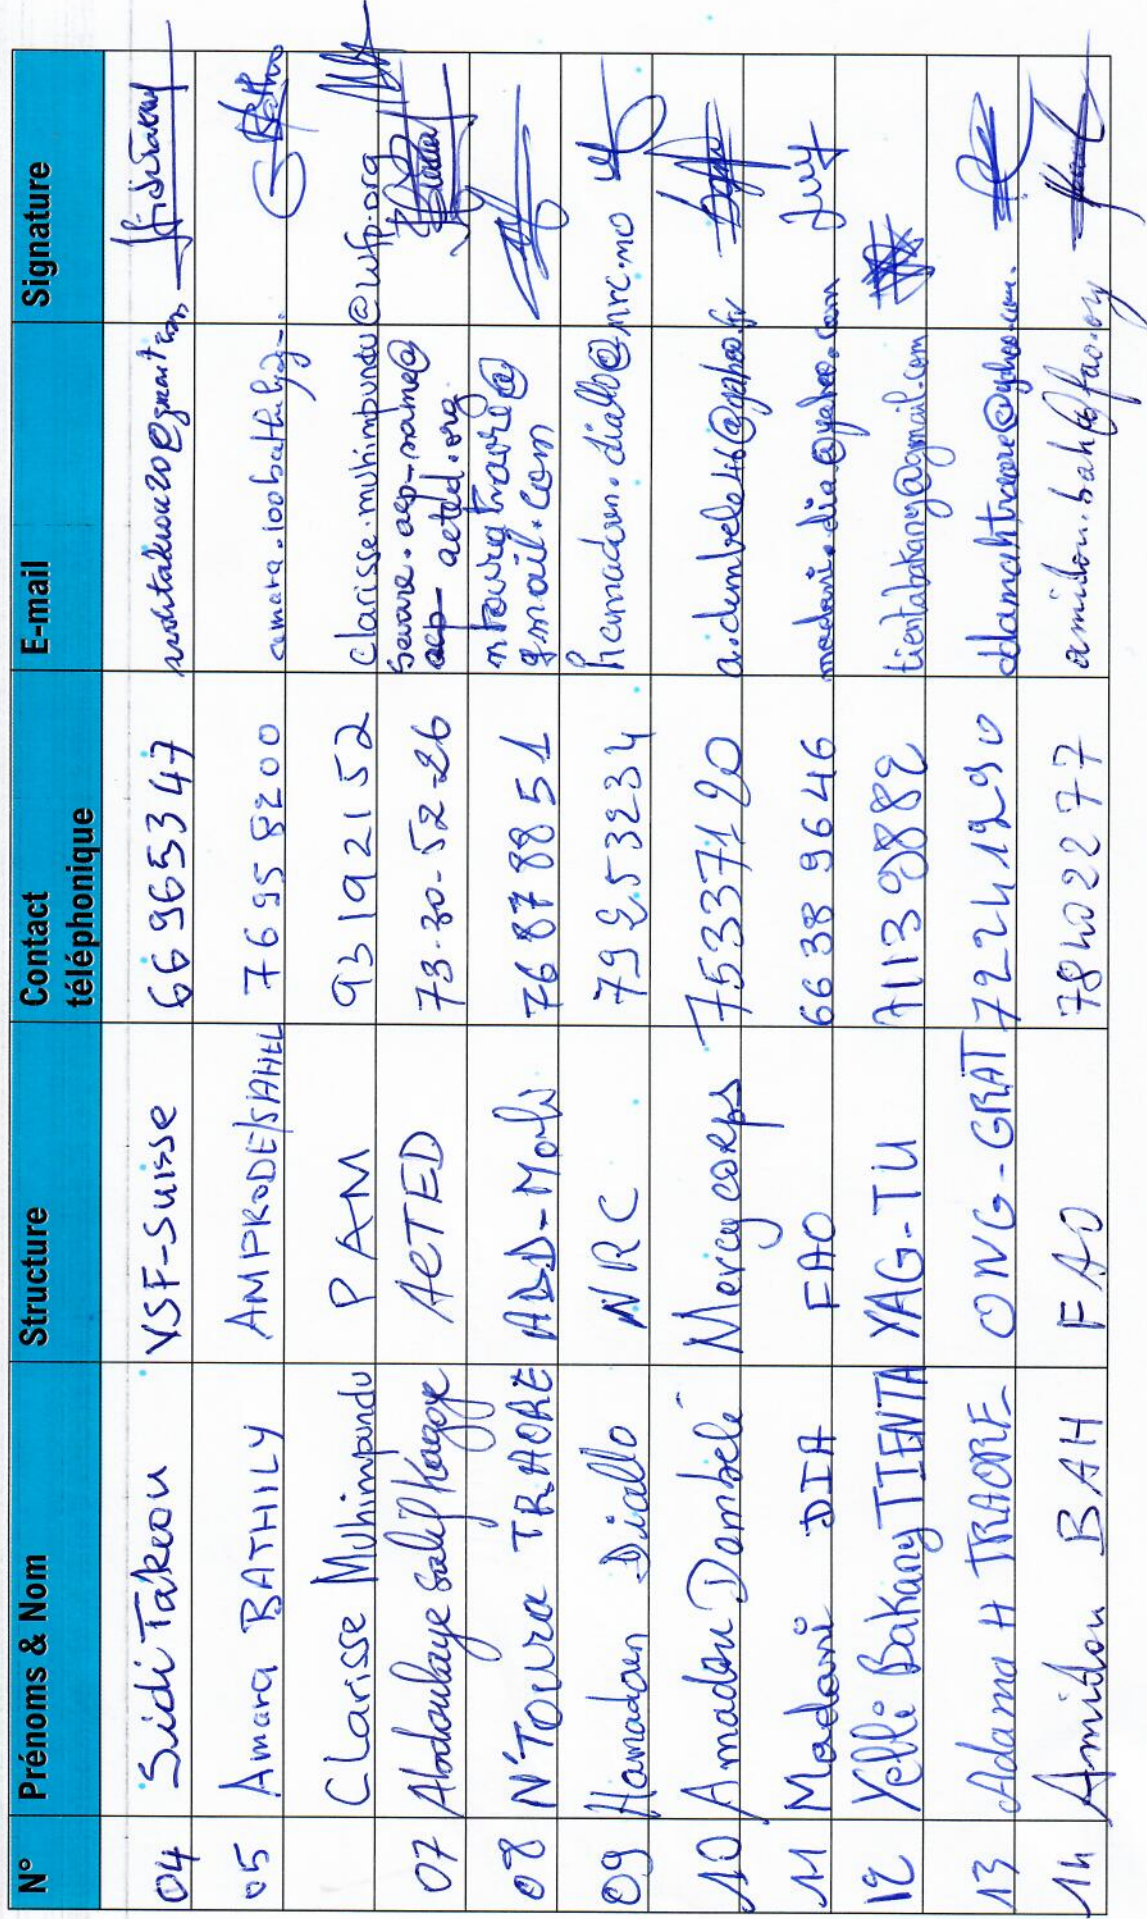 N° Prénoms & Nom Structure Contact téléphonique E-mail Signature
04 Sidi Takiou VSF-Suisse 66965347
05 Amara BATHILY AMPRODE/SAHEL 76958200
Clarisse Muhimpundu PAM 93192152 clarisse.muhimpundu@wfp.org
07 Abdoulaye Salif Kagoye ACTED 73-30-52-26
acted.org
08 N'Toura TRAORE ADD-Mali 76878851 ntouratraore@
gmail.com
09 Hamadoun Diallo NRC 79253234 hamadoun.diallo@nrc.no
10 Amadou Dembelé Mercy corps 75337120
11 Madani DIA FAO 66389646 madani.dia@yahoo.com
12 Yelli Bakany TIENTA YAG-TU tientabakany@gmail.com
13 Adama H TRAORE ONG-GRAT 72241290
14 Amidou BAH FAO 78402277 amidou.bah@fao.org